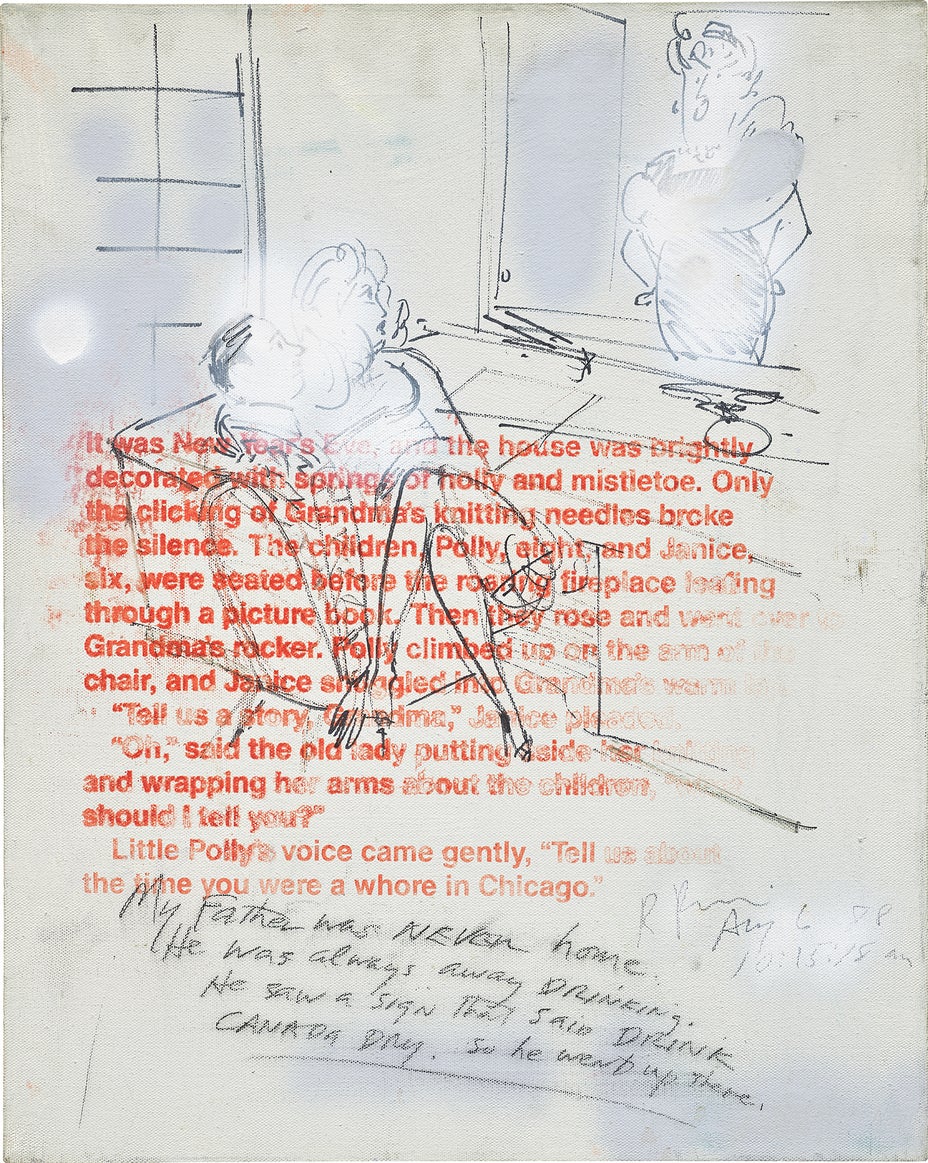 It was New Year's Eve, and the house was brightly
decorated with springs of holly and mistletoe. Only
the clicking of Grandma's knitting needles broke
the silence. The children, Polly, eight, and Janice,
six, were seated before the roaring fireplace leafing
through a picture book. Then they rose and went over to
Grandma's rocker. Polly climbed up on the arm of the
chair, and Janice snuggled into Grandma's warm
"Tell us a story, Grandma," Janice pleaded.
"Oh," said the old lady putting aside her
and wrapping her arms about the children,
should I tell you?"
Little Polly's voice came gently, "Tell us about
the time you were a whore in Chicago."
My Father was NEVER home.
He was always away DRINKING.
He saw a sign that said DRINK
CANADA DRY. So he went up there.
Aug 6 88